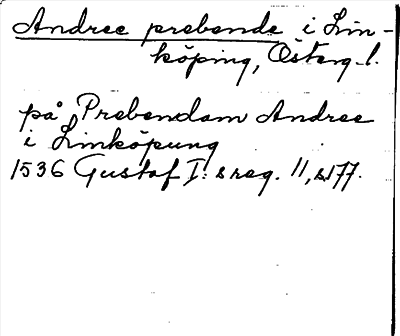 Andree prebende i Lin-
köping, Österg. l.
på Prebendam Andree
i Linköpung
1536 Gustaf I:s reg. 11, s. 177.